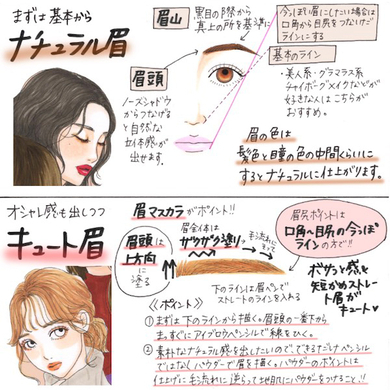 まずは基本から
ナチュラル眉
眉山
黒目の際から
真上の所を基準に
今っぽい眉にしたい場合は
口角から目尻をつなげた
ラインにする
基本のライン
・美人系・グラマラス系
チャイボーグメイクなどが
好きな人はこちらが
おすすめ。
眉頭
ノーズシャドウ
からつなげる
と自然な
立体感が
出せます。
眉の色は
髪色と瞳の色の中間くらいに
するとナチュラルに仕上がります。
オシャレ感も出しつつ
キュート眉
眉マスカラがポイント!!
眉頭は
上方向
に
塗る
眉全体は
ザクザク塗り
毛流れにそって
下のラインは眉ペンで
ストレートのラインを入れる
眉尻ポイントは
口角〜目尻の今っぽ
ラインの方で!!
ボサッと感と
短かめストレー
ト眉が
キュート♥
《ポイント》
①まずは下のラインから描く。眉頭の一番下から
まっすぐにアイブロウペンシルで線をひく。
②素朴なナチュラル感を出したいので、できるだけペンシル
ではなくパウダーで眉を描く。パウダーのポイントは
仕上げに毛流れに逆らって地肌にパウダーをつけること!!